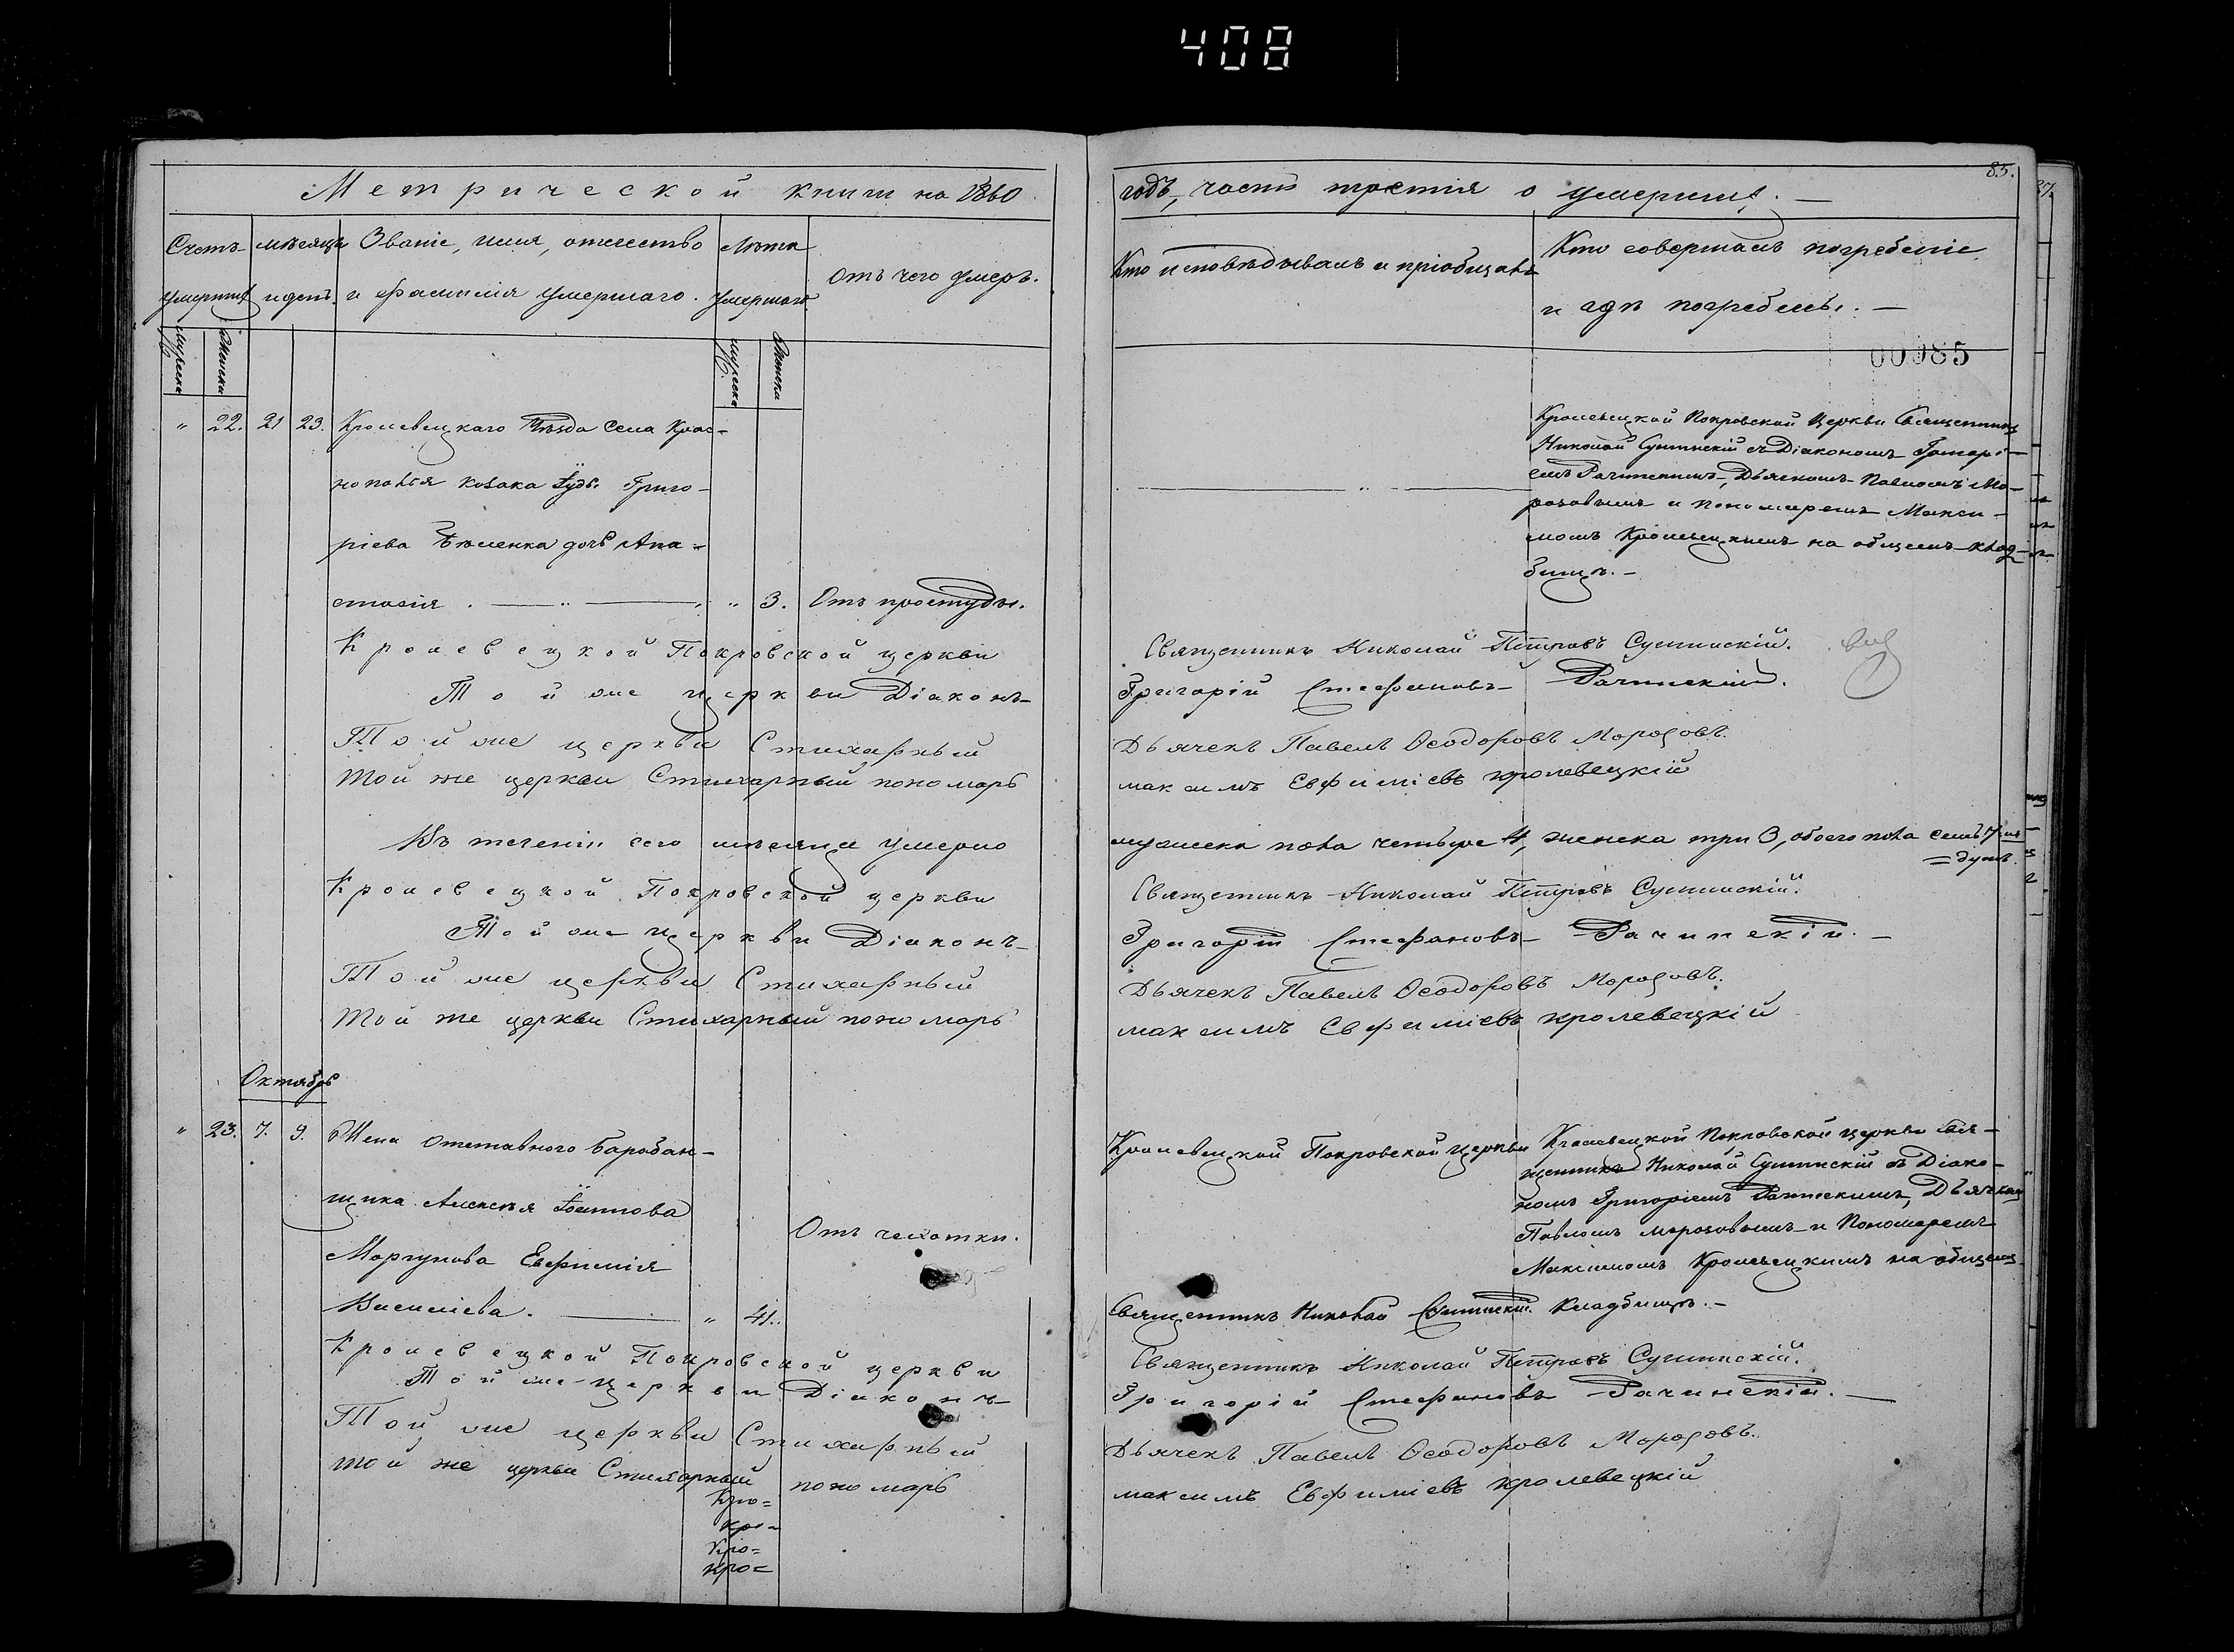 408
Метрической книги на 1860
Счетъ умершихъ
мѣсяцъ и день.
Званіе, имя, отечество и фамилія умершаго.
Лѣта умершаго
Отъ чего умеръ.
мужеска
женска
мужеска
женска
" 22. 21 23. Кролевецкаго уѣзда села Крас-
нополья козака Григо-
ріева дочь Ана-
стасія . — " — " 3. Отъ простуды.
Кролевецкой Покровской церкви
Той же церкви Діаконъ
Той же церкви Стихарный
той же церкви Стихарный пономарь
Въ теченіи сего мѣсяца умерло
Кролевецкой Покровской церкви
Той же церкви Діаконъ
Той же церкви Стихарный
той же церкви Стихарный пономарь
Октябрь
" 23. 7. 9. Жена отставного барабан-
щика Алексѣя Іоаннова
Моргунова Евфимія
Василіева. — " 41.
Отъ чахотки.
Кролевецкой Покровской церкви
Той же церкви Діаконъ
Той же церкви Стихарный
той же церкви Стихарный пономарь
Кро=
кро=
Кро=
кро=
85.
годъ, часть третія о умершихъ. —
Кто исповѣдывалъ и пріобщалъ
Кто совершалъ погребеніе
и гдѣ погребены. —
00085
Кролевецкой Покровской Церкви Священникъ
Николай Сушинскій съ Діакономъ Григорі-
емъ Рачинскимъ, Дьячкомъ Павломъ Мо-
розовымъ и Пономаремъ Макси-
момъ Кролевецкимъ на общемъ клад-
бищѣ. —
Священникъ Николай Петровъ Сушинскій.
Григорій Стефановъ Рачинскій.
Дьячекъ Павелъ Ѳеодоровъ Морозовъ.
максимъ Евфиміевъ кролевецкій
мужеска пола четыре 4, женска три 3, обоего пола семь 7
= душъ.
Священникъ Николай Петровъ Сушинскій.
Григорій Стефановъ Рачинскій. —
Дьячекъ Павелъ Ѳеодоровъ Морозовъ.
максимъ Евфиміевъ кролевецкій
Кролевецкой Покровской Церкви
Священникъ Николай Сушинскій.
Кролевецкой Покровской церкви Свя-
щенникъ Николай Сушинскій съ Діако-
номъ Григоріемъ Рачинскимъ, Дьячкомъ
Павломъ Морозовымъ и Пономаремъ
Максимомъ Кролевецкимъ на общемъ
кладбищѣ. —
Священникъ Николай Петровъ Сушинскій.
Григорій Стефановъ Рачинскій. —
Дьячекъ Павелъ Ѳеодоровъ Морозовъ.
максимъ Евфиміевъ кролевецкій